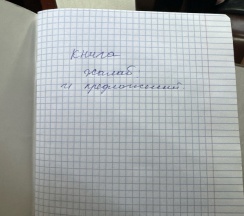 Книга
жалоб
и предложений